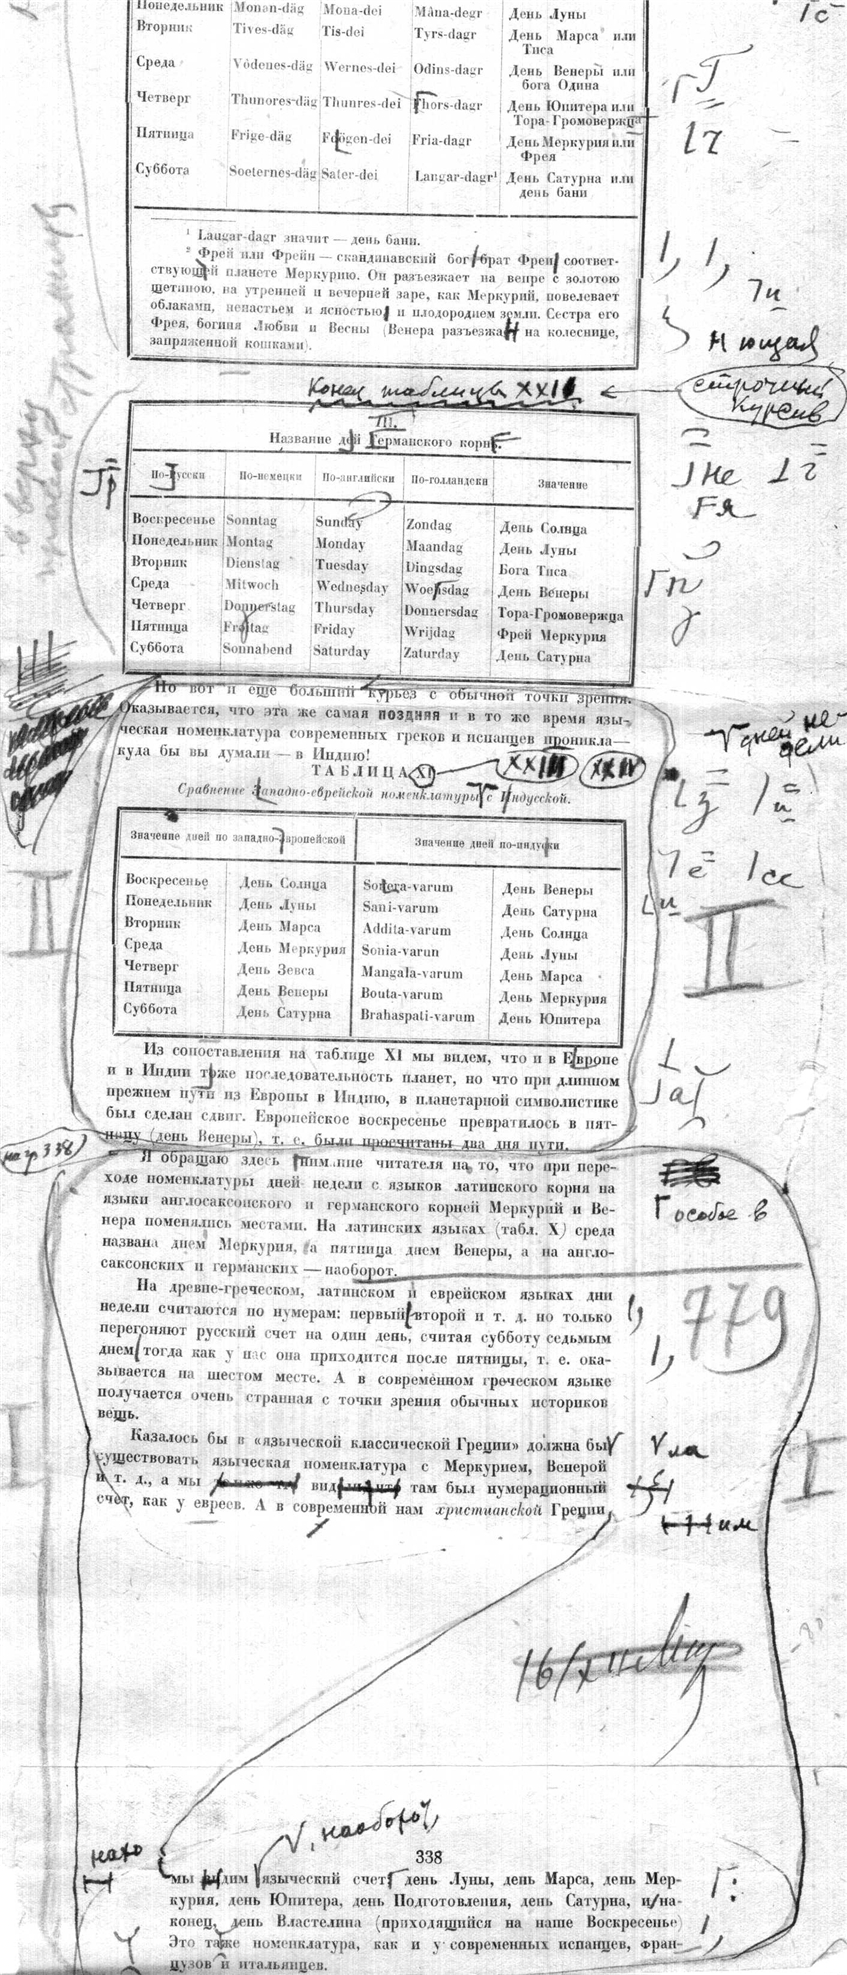 Понедельник Monan-däg Mona-dei Mâna-degr День Луны
Вторник Tives-däg Tis-dei Tyrs-dagr День Марса или Тиса
Среда Vôdenes-däg Wernes-dei Odins-dagr День Венеры или бога Одина
Четверг Thunores-däg Thunres-dei Thors-dagr День Юпитера или Тора-Громовержца
Пятница Frige-däg Fria-dagr День Меркурия или Фрея
Суббота Soeternes-däg Sater-dei Laugar-dagr¹ День Сатурна или день бани
¹ Laugar-dagr значит — день бани.
² Фрей или Фрейн — скандинавский бог брат Фреи соответ-
ствующей планете Меркурию. Он разъезжает на вепре с золотою
щетиною, на утренней и вечерней заре, как Меркурий, повелевает
облаками, ненастьем и ясностью и плодородием земли. Сестра его
Фрея, богиня Любви и Весны (Венера разъезжа на колеснице,
запряженной кошками).
Конец таблицы XXII
строчный курсив
III.
Название дей Германского корня.
По-русски По-немецки По-английски По-голландски Значение
Воскресенье Sonntag Sunday Zondag День Солнца
Понедельник Montag Monday Maandag День Луны
Вторник Dienstag Tuesday Dingsdag Бога Тиса
Среда Mitwoch Wednesday Woensdag День Венеры
Четверг Donnerstag Thursday Donnersdag Тора-Громовержца
Пятница Freitag Friday Wrijdag Фрей Меркурия
Суббота Sonnabend Saturday Zaturday День Сатурна
Но вот и еще больший курьез с обычной точки зрения.
Оказывается, что эта же самая поздняя и в то же время язы-
ческая номенклатура современных греков и испанцев проникла —
куда бы вы думали — в Индию!
дней недели
ТАБЛИЦА XI XXIII XXIV
Сравнение Западно-еврейской номенклатуры с Индусской.
Значение дней по западно-Европейской Значение дней по-индуски
Воскресенье День Солнца День Венеры
Понедельник День Луны Sani-varum День Сатурна
Вторник День Марса Addita-varum День Солнца
Среда День Меркурия Sonia-varun День Луны
Четверг День Зевса Mangala-varum День Марса
Пятница День Венеры Bouta-varum День Меркурия
Суббота День Сатурна Brahaspati-varum День Юпитера
II II
Из сопоставления на таблице XI мы видем, что и в Европе
и в Индии тоже последовательность планет, но что при длинном
прежнем пути из Европы в Индию, в планетарной символистике
был сделан сдвиг. Европейское воскресенье превратилось в пят-
ницу (день Венеры), т. е. были просчитаны два дня пути.
Я обращаю здесь внимание читателя на то, что при пере-
ходе номенклатуры дней недели с языков латинского корня на
языки англосаксонского и германского корней Меркурий и Ве-
нера поменялись местами. На латинских языках (табл. X) среда
названа днем Меркурия, а пятница днем Венеры, а на англо-
саксонских и германских — наоборот.
особое в
На древне-греческом, латинском и еврейском языках дни
недели считаются по нумерам: первый второй и т. д. но только
перегоняют русский счет на один день, считая субботу седьмым
днем тогда как у нас она приходится после пятницы, т. е. ока-
зывается на шестом месте. А в современном греческом языке
получается очень странная с точки зрения обычных историков
вещь.
779
Казалось бы в «языческой классической Греции» должна бы
существовать языческая номенклатура с Меркурием, Венерой
и т. д., а мы вид там был нумерационный
счет, как у евреев. А в современной нам христианской Греции
I I
, наоборот,
338
мы видим языческий счет день Луны, день Марса, день Мер-
курия, день Юпитера, день Подготовления, день Сатурна, и на-
конец, день Властелина (приходящийся на наше Воскресенье)
Это таже номенклатура, как и у современных испанцев, фран-
цузов и итальянцев.